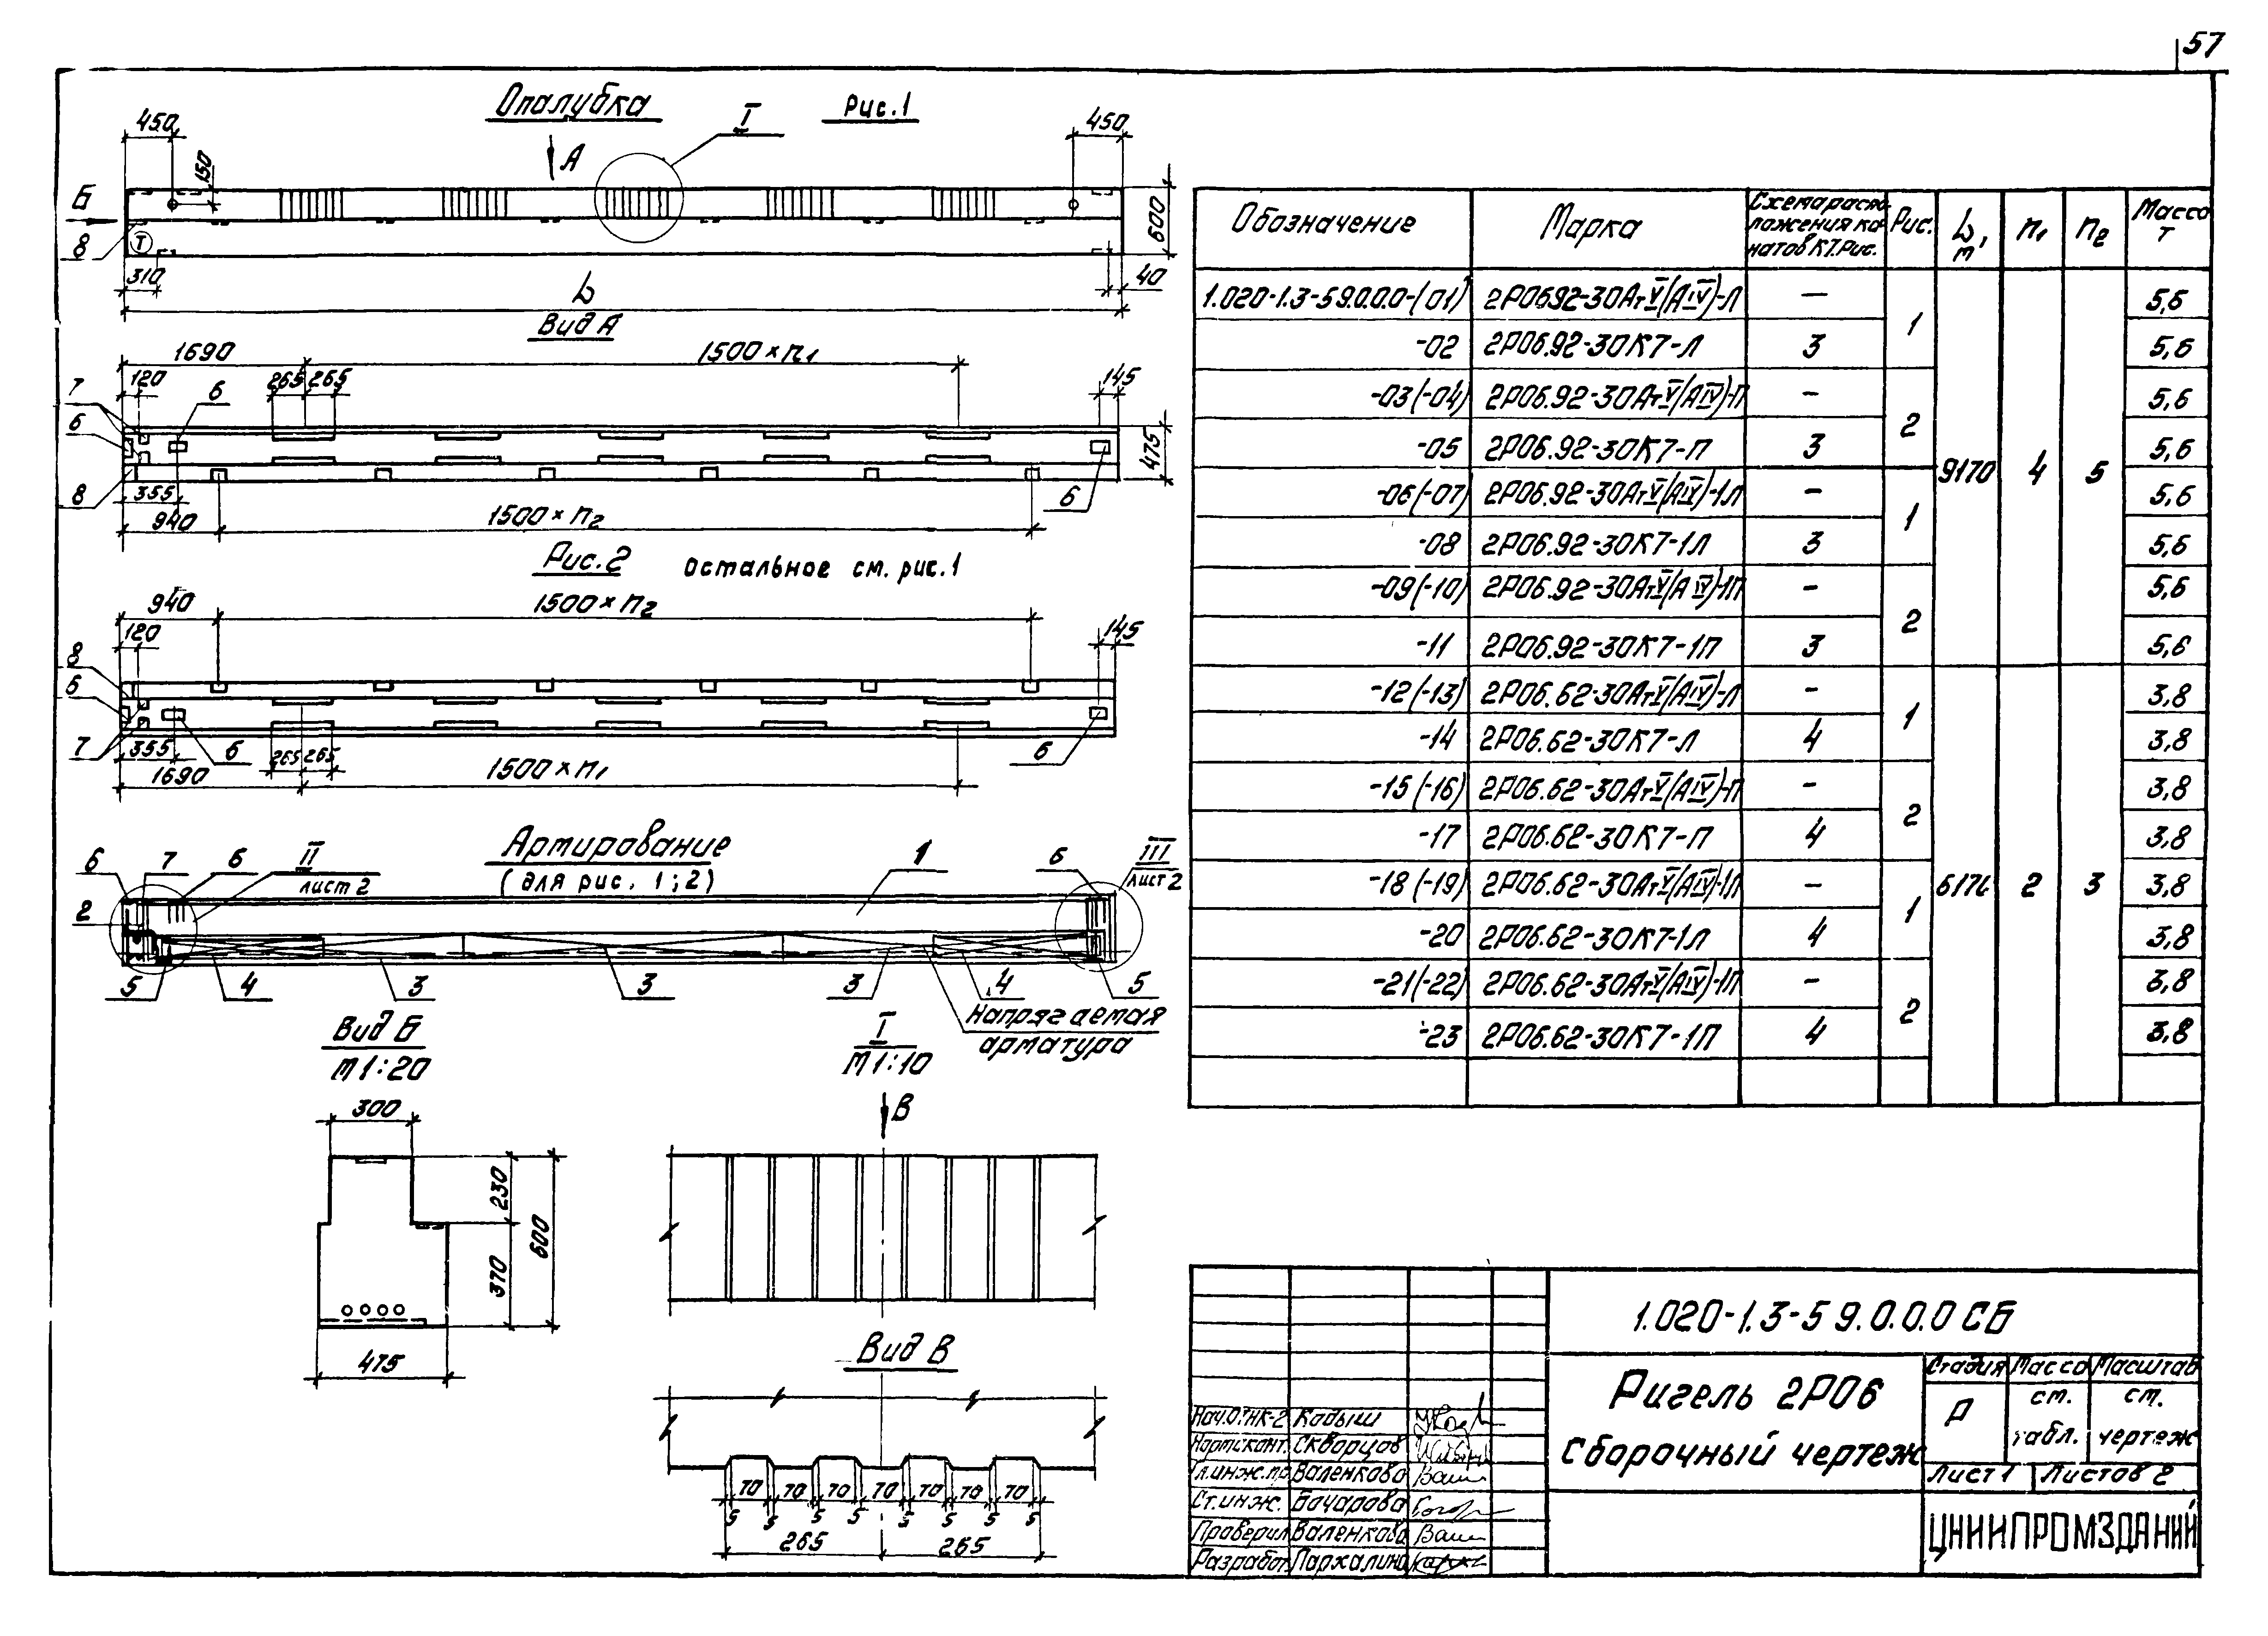 57
Опалубка
Рис.1
I
А
Б
450
150
450
600
8
Т
310
40
L
Вид А
1690
1500×n1
7
120
265
265
6
145
6
475
8
355
6
940
1500×n2
Рис.2
остальное см. рис.1
940
1500×n2
120
145
8
6
7
355
6
265
265
6
1690
1500×n1
Армирование
(для рис. 1;2)
6
7
6
II
лист 2
1
6
III
лист 2
2
5
4
3
3
3
4
5
Напрягаемая
арматура
Вид Б
М 1:20
300
230
370
600
475
I
М 1:10
В
Вид В
70 70 70 70 70 70 70
5 5 5 5 5 5 5 5
265 265
Обозначение Марка Схема распо-ложения ка-натов К7. Рис. Рис. L, м n1 n2 Масса т
1.020-1.3-5 9.0.0.0-(01) 2Р06.92-30АтV(АIV)-Л — 1 9170 4 5 5,6
-02 2Р06.92-30К7-Л 3 5,6
-03(-04) 2Р06.92-30АтV(АIV)-П - 2 5,6
-05 2Р06.92-30К7-П 3 5,6
-06(-07) 2Р06.92-30АтV(АIV)-1Л - 1 5,6
-08 2Р06.92-30К7-1Л 3 5,6
-09(-10) 2Р06.92-30АтV(АIV)-1П - 2 5,6
-11 2Р06.92-30К7-1П 3 5,6
-12(-13) 2Р06.62-30АтV(АIV)-Л - 1 2 3 3,8
-14 2Р06.62-30К7-Л 4 3,8
-15(-16) 2Р06.62-30АтV(АIV)-П - 2 3,8
-17 2Р06.62-30К7-П 4 3,8
-18(-19) 2Р06.62-30АтV(АIV)-1Л - 1 3,8
-20 2Р06.62-30К7-1Л 4 3,8
-21(-22) 2Р06.62-30АтV(АIV)-1П - 2 3,8
-23 2Р06.62-30К7-1П 4 3,8
1.020-1.3-5 9.0.0.0 СБ
Ригель 2Р06
сборочный чертеж
Стадия Масса Масштаб
Р см. табл. см. чертеж
Лист 1 Листов 2
ЦНИИПРОМЗДАНИЙ
Нач.ОТНК-2 Кодыш
Нормконт. Скворцов
Гл.инж.пр Валенкова
Ст.инж. Бочарова
Проверил Валенкова
Разработ.